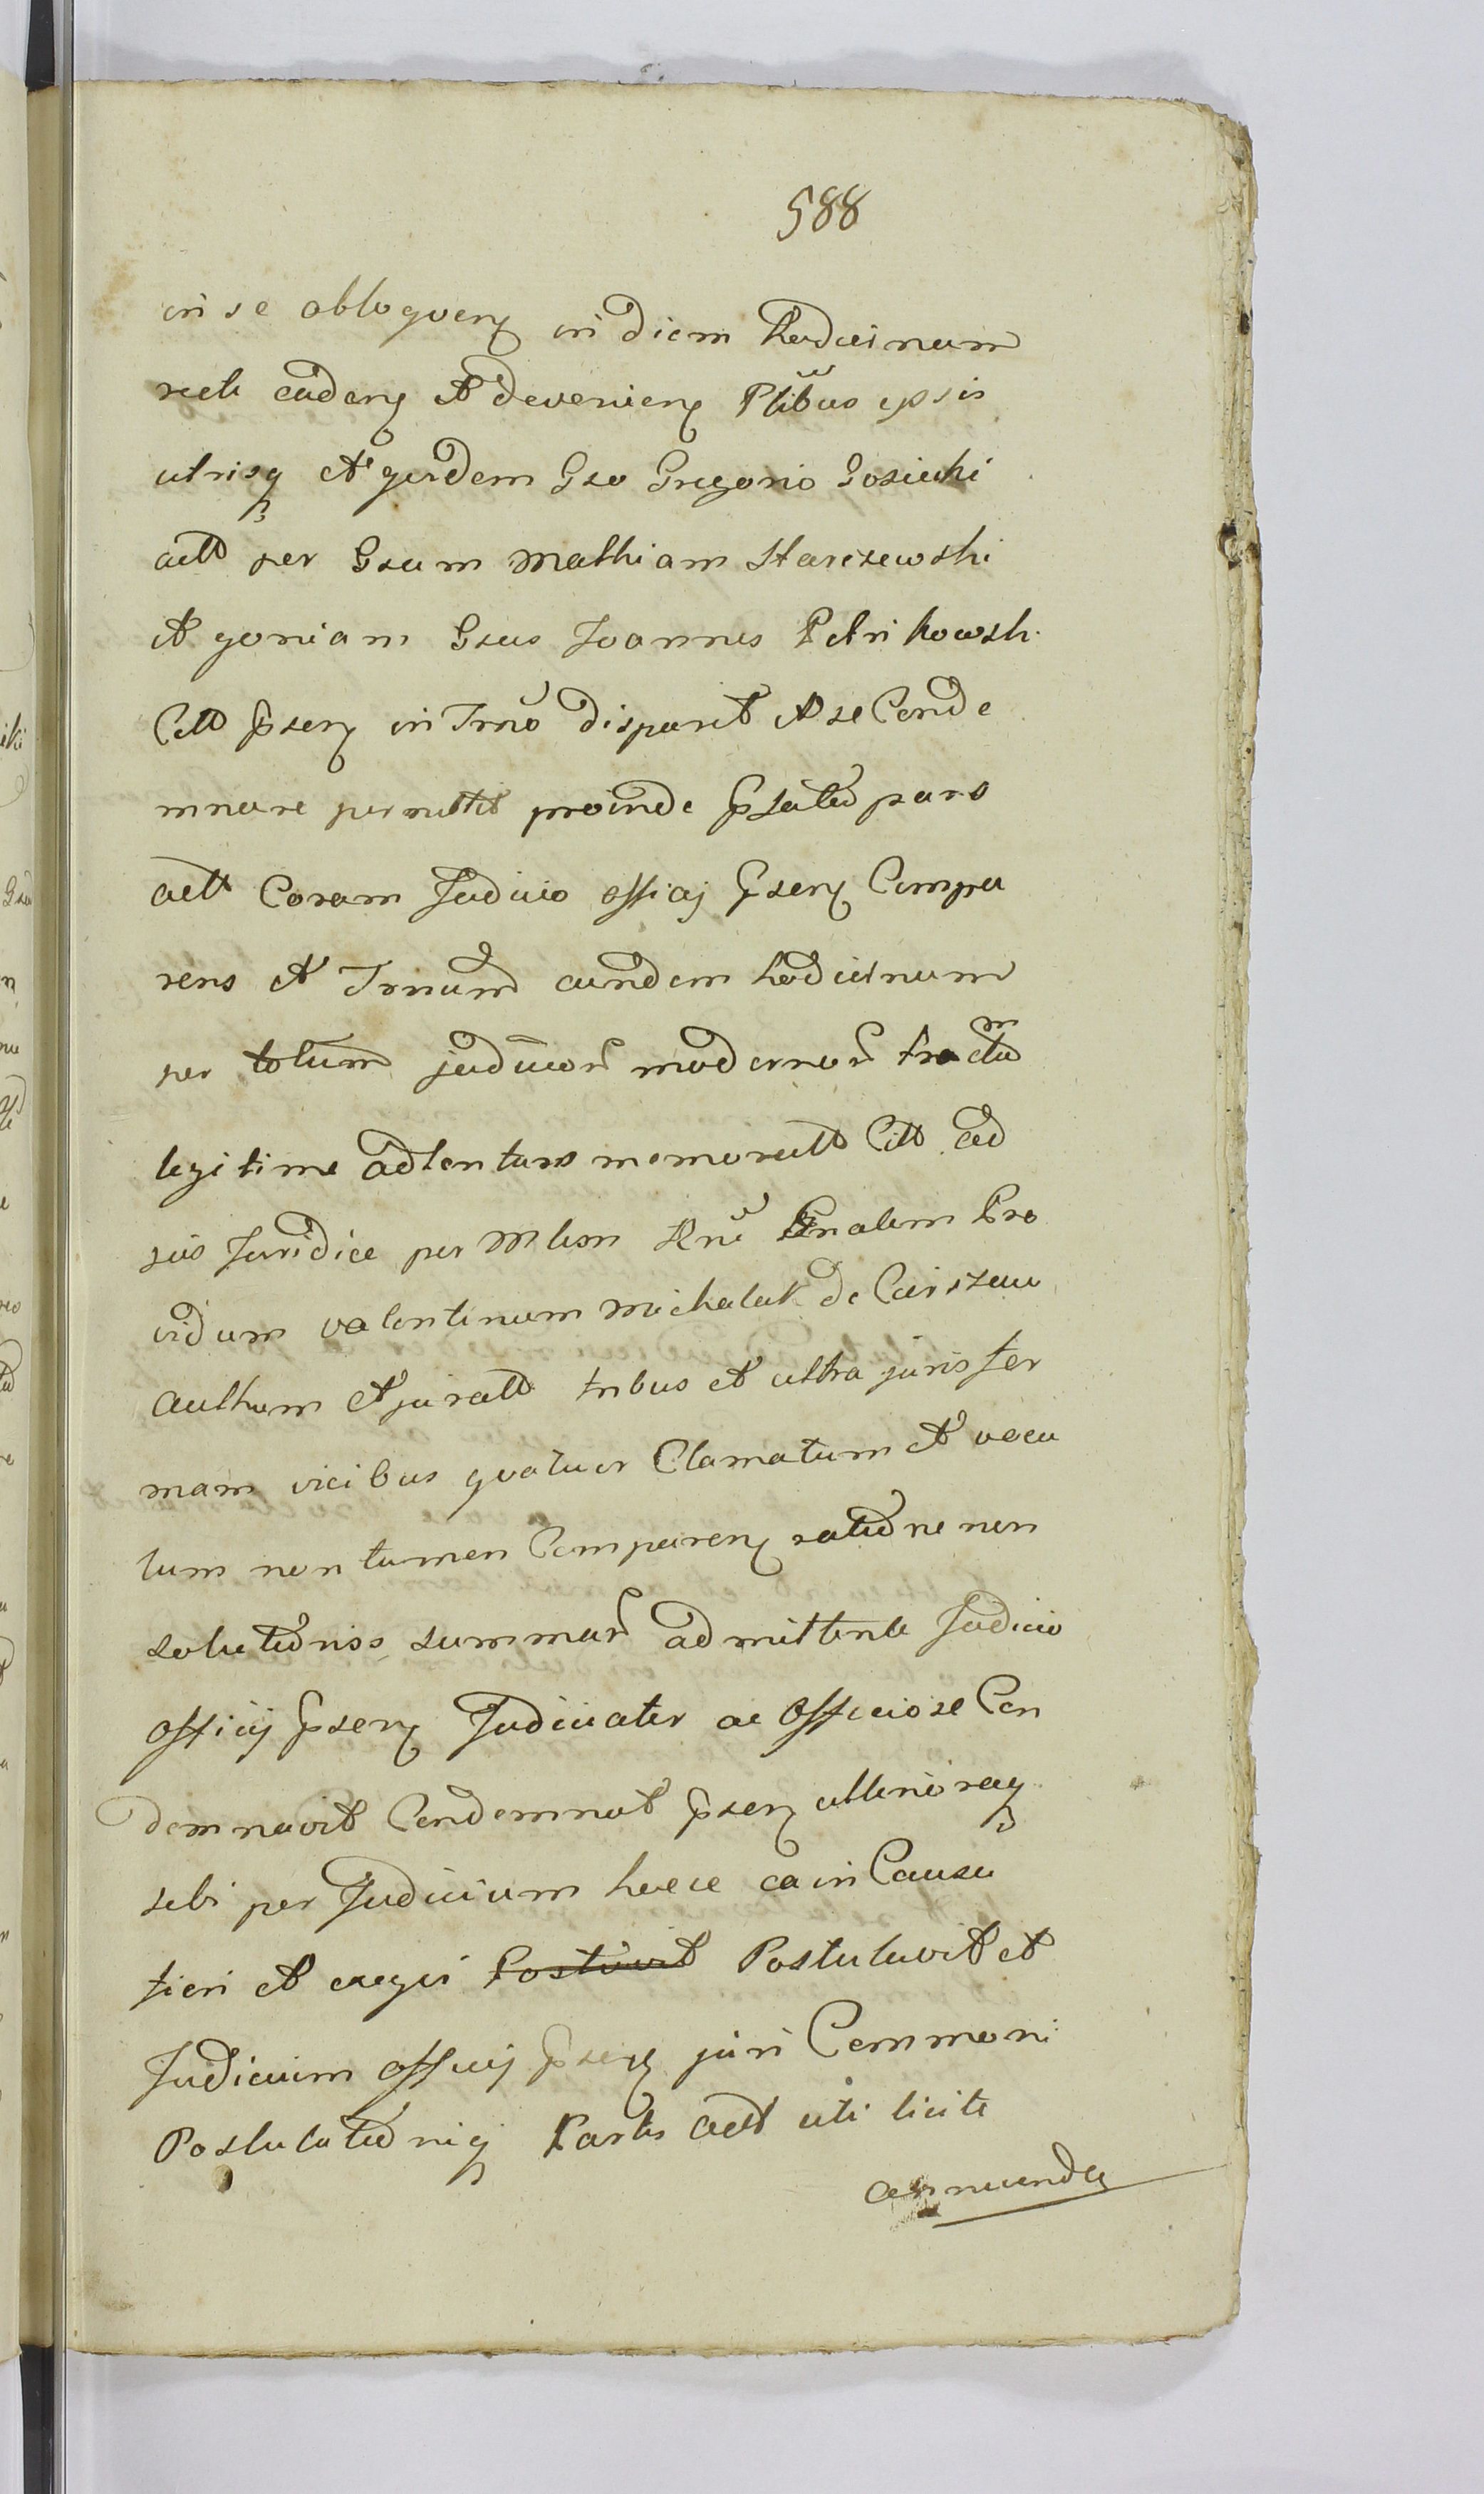 588
in se obloquen in diem hodiernum
recte caden et devenien Ptibus ipsis
utrisq et quidem Gso Gregorio Gosiecki
actt per Gsum Mathiam Starczewski
et quoniam Gsus Joannes Petrikowsk
Citt psen in Trmo disparet et se Conde
mnare permittit proinde psatta pars
actt Coram Judicio officij psen Compa
rens et Trnum eundem hodiernum
per totum judicior modernor tractum
legitime adtentans memoratt Citt ad
jus Juridice per Mlem Rni Gnalem Pro
vidum Valentinum Michalak de
authum et juratt tribus et ultra juris for
mam vicibus quatuor Clamatum et voca
tum non tamen Comparen ratione non
solutionis summar admittente Judicio
officij psen Judicialiter ac officiose Con
demnavit Condemnat psen ulterioraq
sibi per Judicium haece ea in Causa
fieri et exequi Postuvit Postulavit et
Judicium officij psen juri Communi
Postulationiq Partis actt uti licite